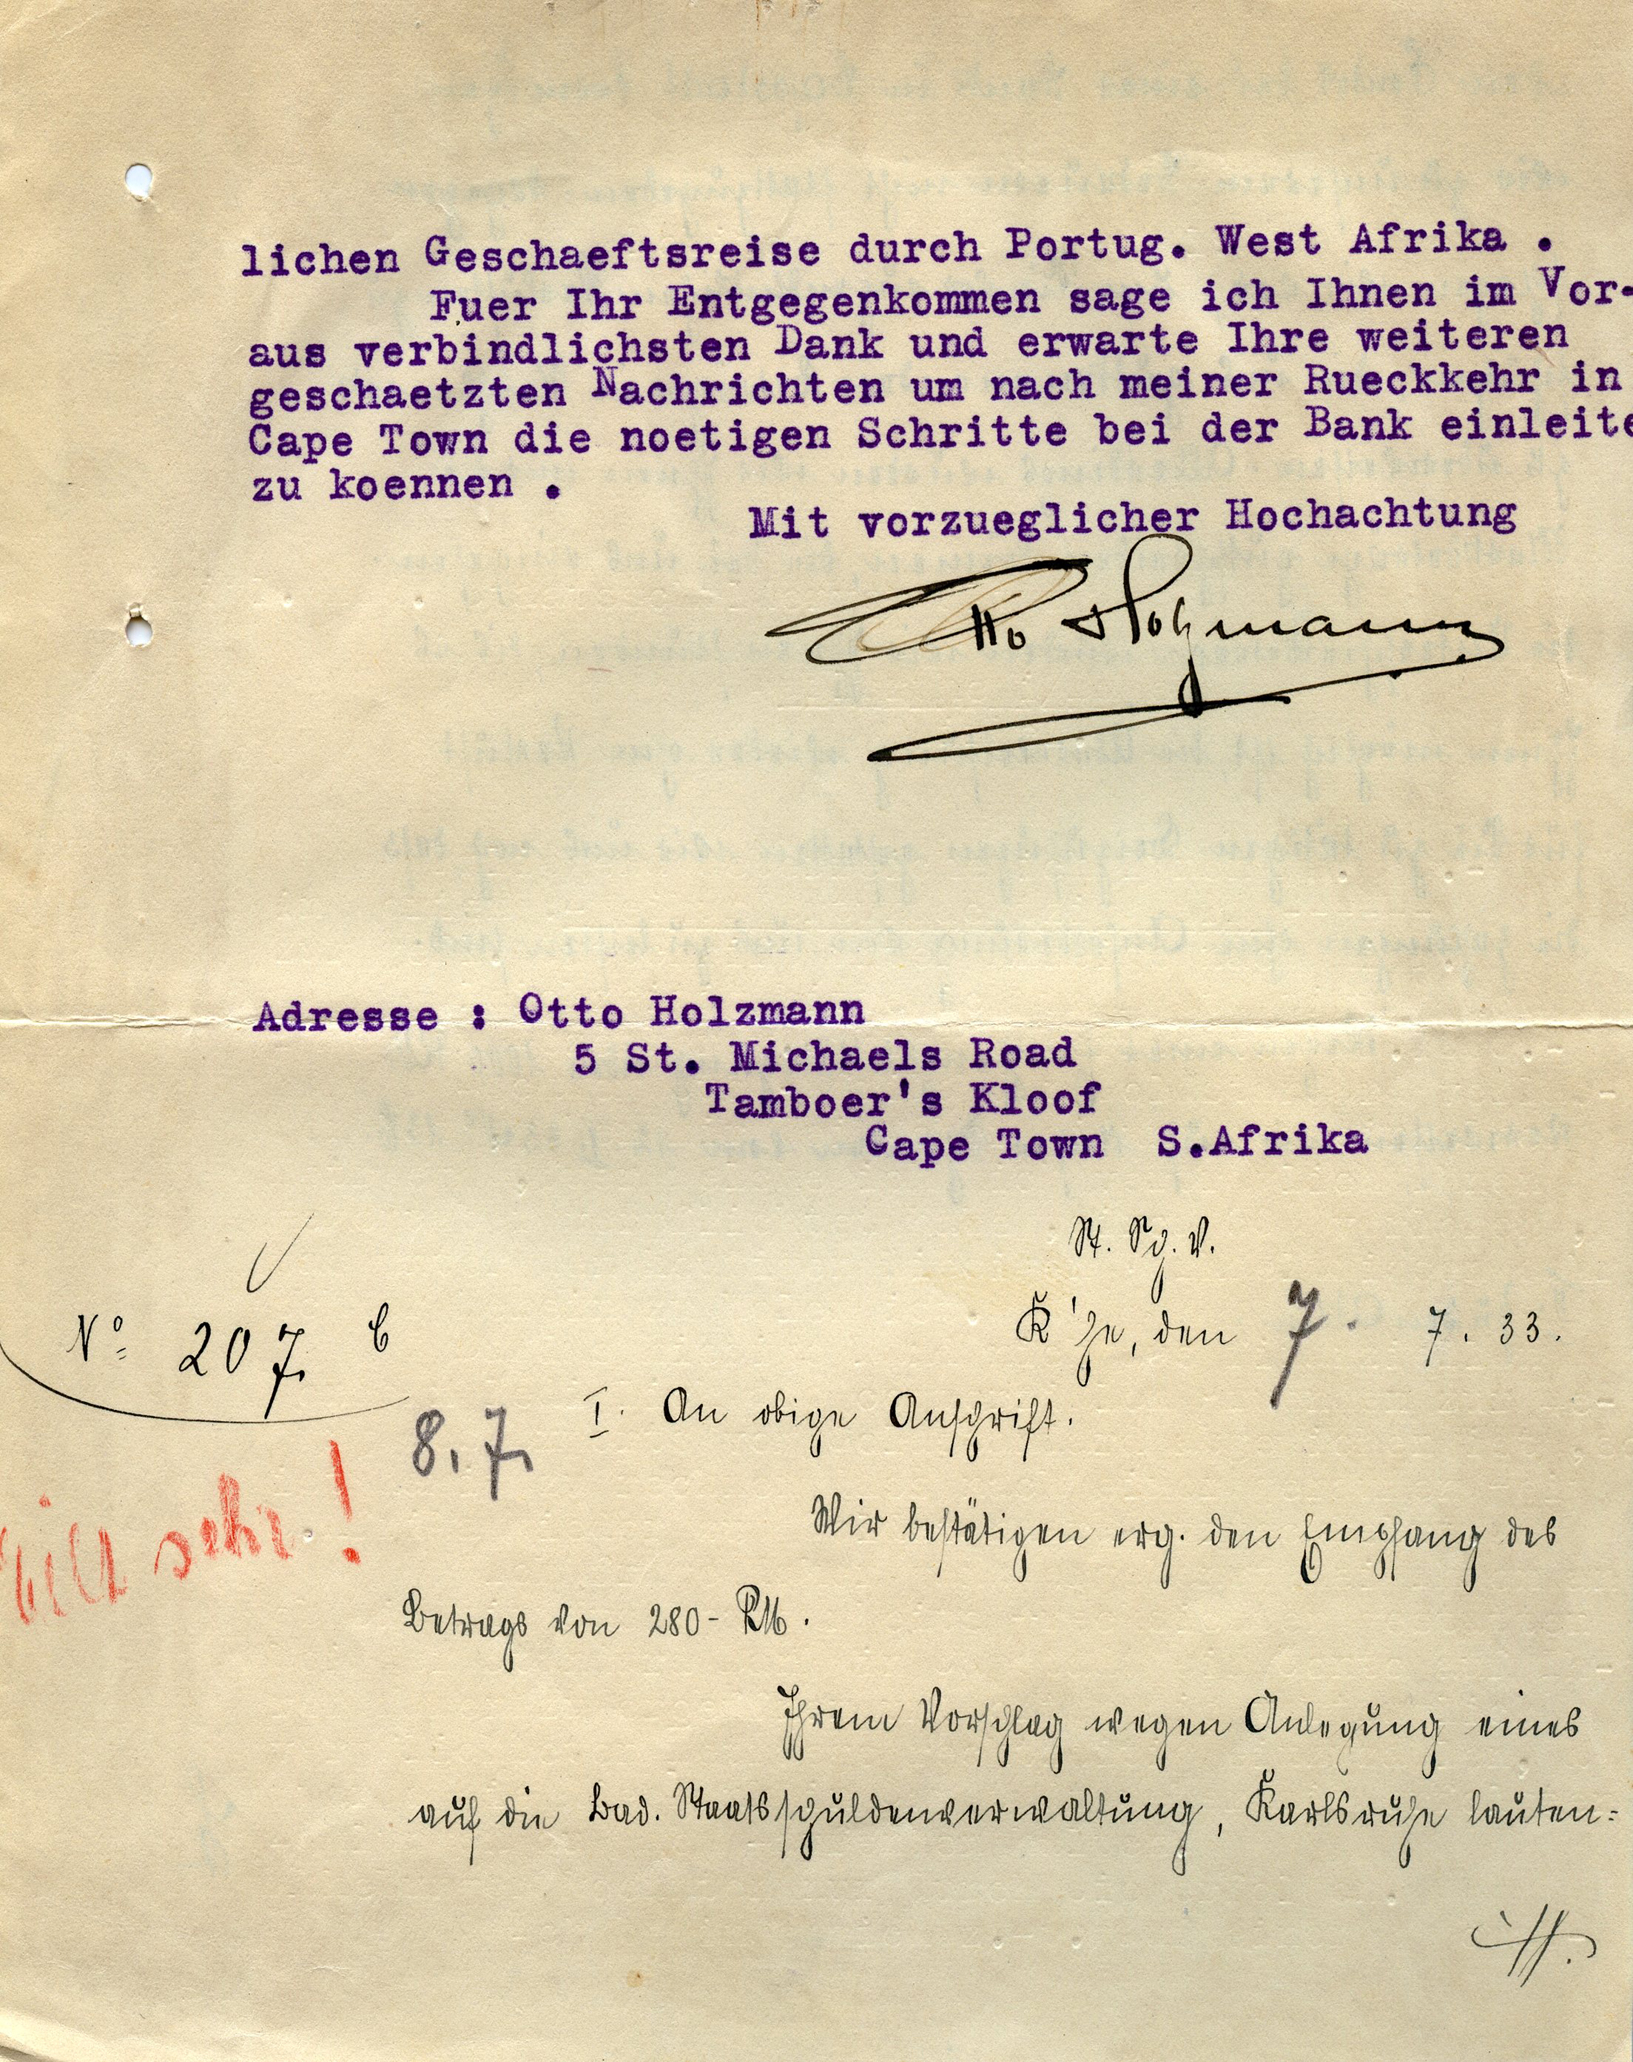 lichen Geschaeftsreise durch Portug. West Afrika .
Fuer Ihr Entgegenkommen sage ich Ihnen im Vor-
aus verbindlichsten Dank und erwarte Ihre weiteren
geschaetzten Nachrichten um nach meiner Rueckkehr in
Cape Town die noetigen Schritte bei der Bank einleite
zu koennen .
Mit vorzueglicher Hochachtung
Otto Holzmann
Adresse : Otto Holzmann
5 St. Michaels Road
Tamboer's Kloof
Cape Town S.Afrika
St. Sch. V.
K'he, den 7. 7. 33.
No 207 b
I. An obige Anschrift.
8.7.
Eilt sehr!
Wir bestätigen erg. den Empfang des
Betrags von 280- RM.
Ihrem Vorschlag wegen Anlegung eines
auf die Bad. Staatsschuldenverwaltung, Karlsruhe lauten=